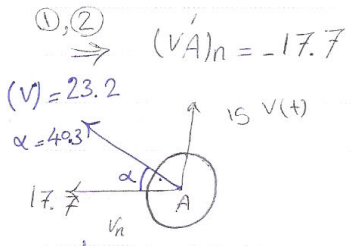 ①,②
⇒ (VA')n = -17.7
(V) = 23.2
α = 40.3
15 V(t)
α
17.7
A
Vn